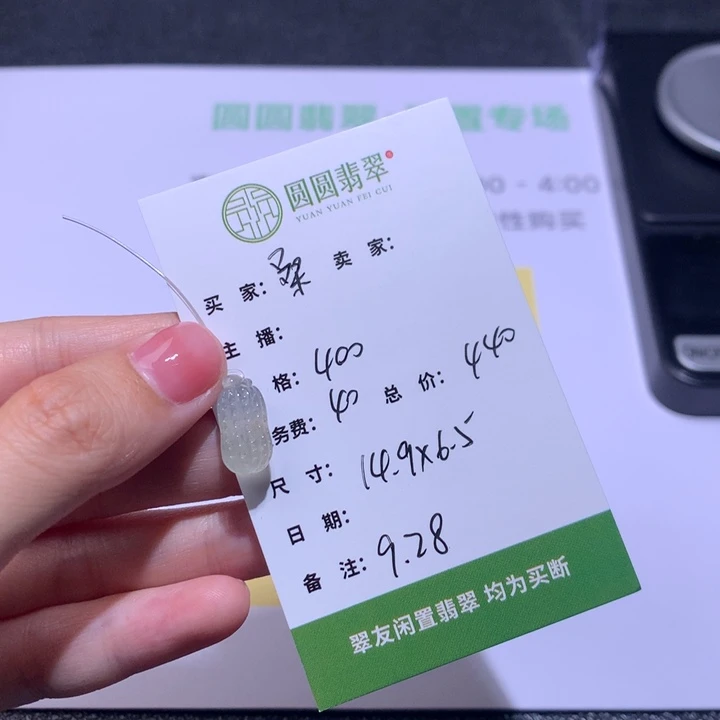 圆圆翡翠 置专场
00 - 4:00
性购买
圆圆翡翠
YUAN YUAN FEI CUI
买 家: 卖 家:
主 播:
格: 400
务费: 40 总 价: 440
尺 寸: 14.9x6.5
日 期:
备 注: 9.28
翠友闲置翡翠 均为买断